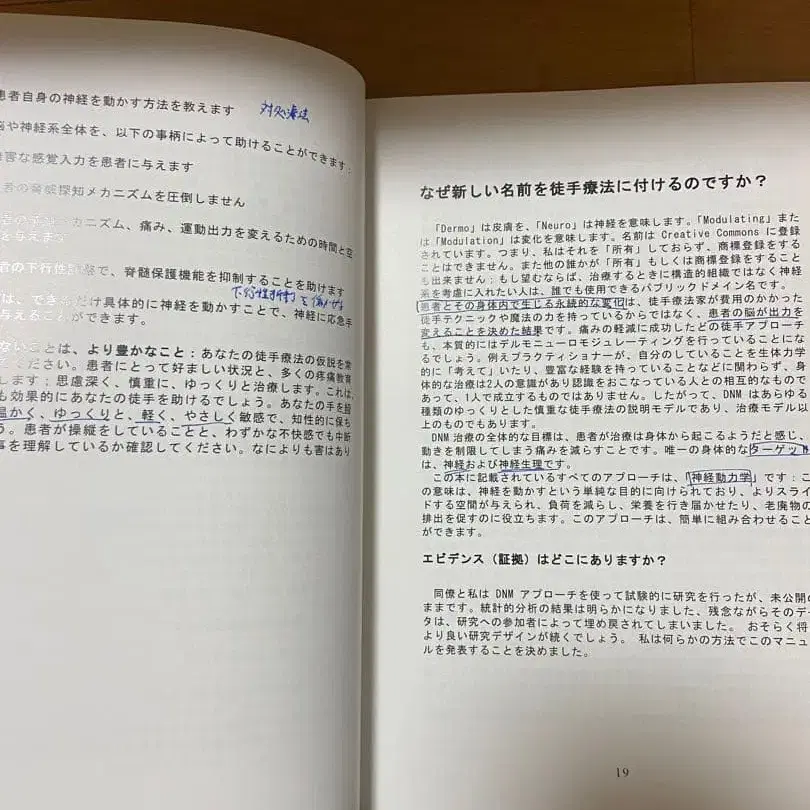 患者自身の神経を動かす方法を教えます
対処療法
脳や神経系全体を、以下の事柄によって助けることができます：
害な感覚入力を患者に与えます
者の脅威探知メカニズムを圧倒しません
カニズム、痛み、運動出力を変えるための時間と空
を与えます
の下行性調整で、脊髄保護機能を抑制することを助けます
下行性抑制
は、できるだけ具体的に神経を動かすことで、神経に応急手
与えることができます。
ないことは、より豊かなこと：あなたの徒手療法の仮説を常
ください。患者にとって好ましい状況と、多くの疼痛教育
します：思慮深く、慎重に、ゆっくりと治療します。これは、
も効果的にあなたの徒手を助けるでしょう。あなたの手を
温かく、ゆっくりと、軽く、やさしく敏感で、知性的に保ち
う。患者が操縦をしていることと、わずかな不快感でも中断
事を理解しているか確認してください。なによりも害はあり
なぜ新しい名前を徒手療法に付けるのですか？
「Dermo」は皮膚を、「Neuro」は神経を意味します。「Modulating」また
は「Modulation」は変化を意味します。名前は Creative Commons に登録
されています。つまり、私はそれを「所有」しておらず、商標登録をする
ことはできません。また他の誰かが「所有」もしくは商標登録をすること
も出来ません：もし望むならば、治療するときに構造的組織ではなく神経
系を考慮に入れたい人は、誰でも使用できるパブリックドメイン名です。
患者とその身体内で生じる永続的な変化は、徒手療法家が費用のかかった
徒手テクニックや魔法の力を持っているからではなく、患者の脳が出力を
変えることを決めた結果です。痛みの軽減に成功したどの徒手アプローチ
も、本質的にはデルモニューロモジュレーティングを行っていることにな
るでしょう。例えプラクティショナーが、自分のしていることを生体力学
的に「考えて」いたり、豊富な経験を持っていることなどに関わらず、身
体的な治療は2人の意識があり認識をおこなっている人との相互的なもので
あって、1人で成立するものではありません。したがって、DNM はあらゆる
種類のゆっくりとした慎重な徒手療法の説明モデルであり、治療モデル以
上のものでもあります。
DNM 治療の全体的な目標は、患者が治療は身体から起こるようだと感じ、
動きを制限してしまう痛みを減らすことです。唯一の身体的なターゲット
は、神経および神経生理です。
この本に記載されているすべてのアプローチは、「神経動力学」です：こ
の意味は、神経を動かすという単純な目的に向けられており、よりスライ
ドする空間が与えられ、負荷を減らし、栄養を行き届かせたり、老廃物の
排出を促すのに役立ちます。このアプローチは、簡単に組み合わせること
ができます。
エビデンス（証拠）はどこにありますか？
同僚と私は DNM アプローチを使って試験的に研究を行ったが、未公開の
ままです。統計的分析の結果は明らかになりました、残念ながらそのデー
タは、研究への参加者によって埋め戻されてしまいました。 おそらく将
より良い研究デザインが続くでしょう。 私は何らかの方法でこのマニュ
ルを発表することを決めました。
19